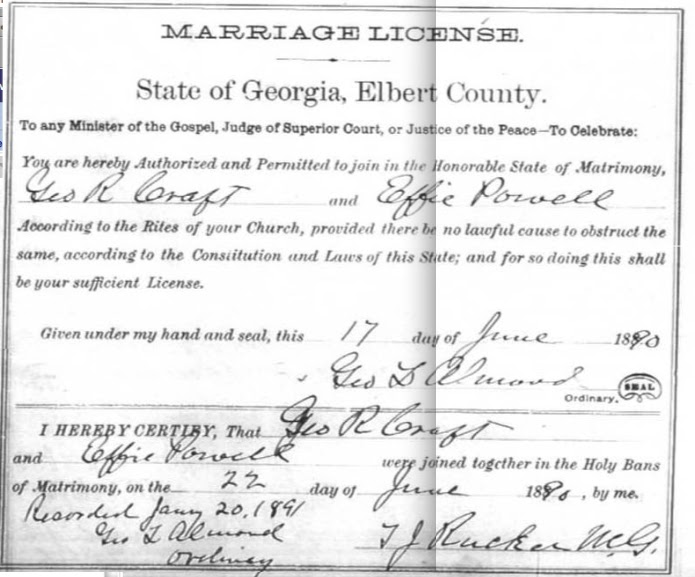 MARRIAGE LICENSE.
State of Georgia, Elbert County.
To any Minister of the Gospel, Judge of Superior Court, or Justice of the Peace—To Celebrate:
You are hereby Authorized and Permitted to join in the Honorable State of Matrimony,
Geo R Craft and Effie Powell
According to the Rites of your Church, provided there be no lawful cause to obstruct the
same, according to the Constitution and Laws of this State; and for so doing this shall
be your sufficient License.
Given under my hand and seal, this 17 day of June 1890
Geo L Almond
SEAL
Ordinary.
I HEREBY CERTIFY, That Geo R Craft
and Effie Powell were joined together in the Holy Bans
of Matrimony, on the 22 day of June 1890, by me.
Recorded Jany 20, 1891
Geo L Almond
Ordinary
T J Rucker M.G.